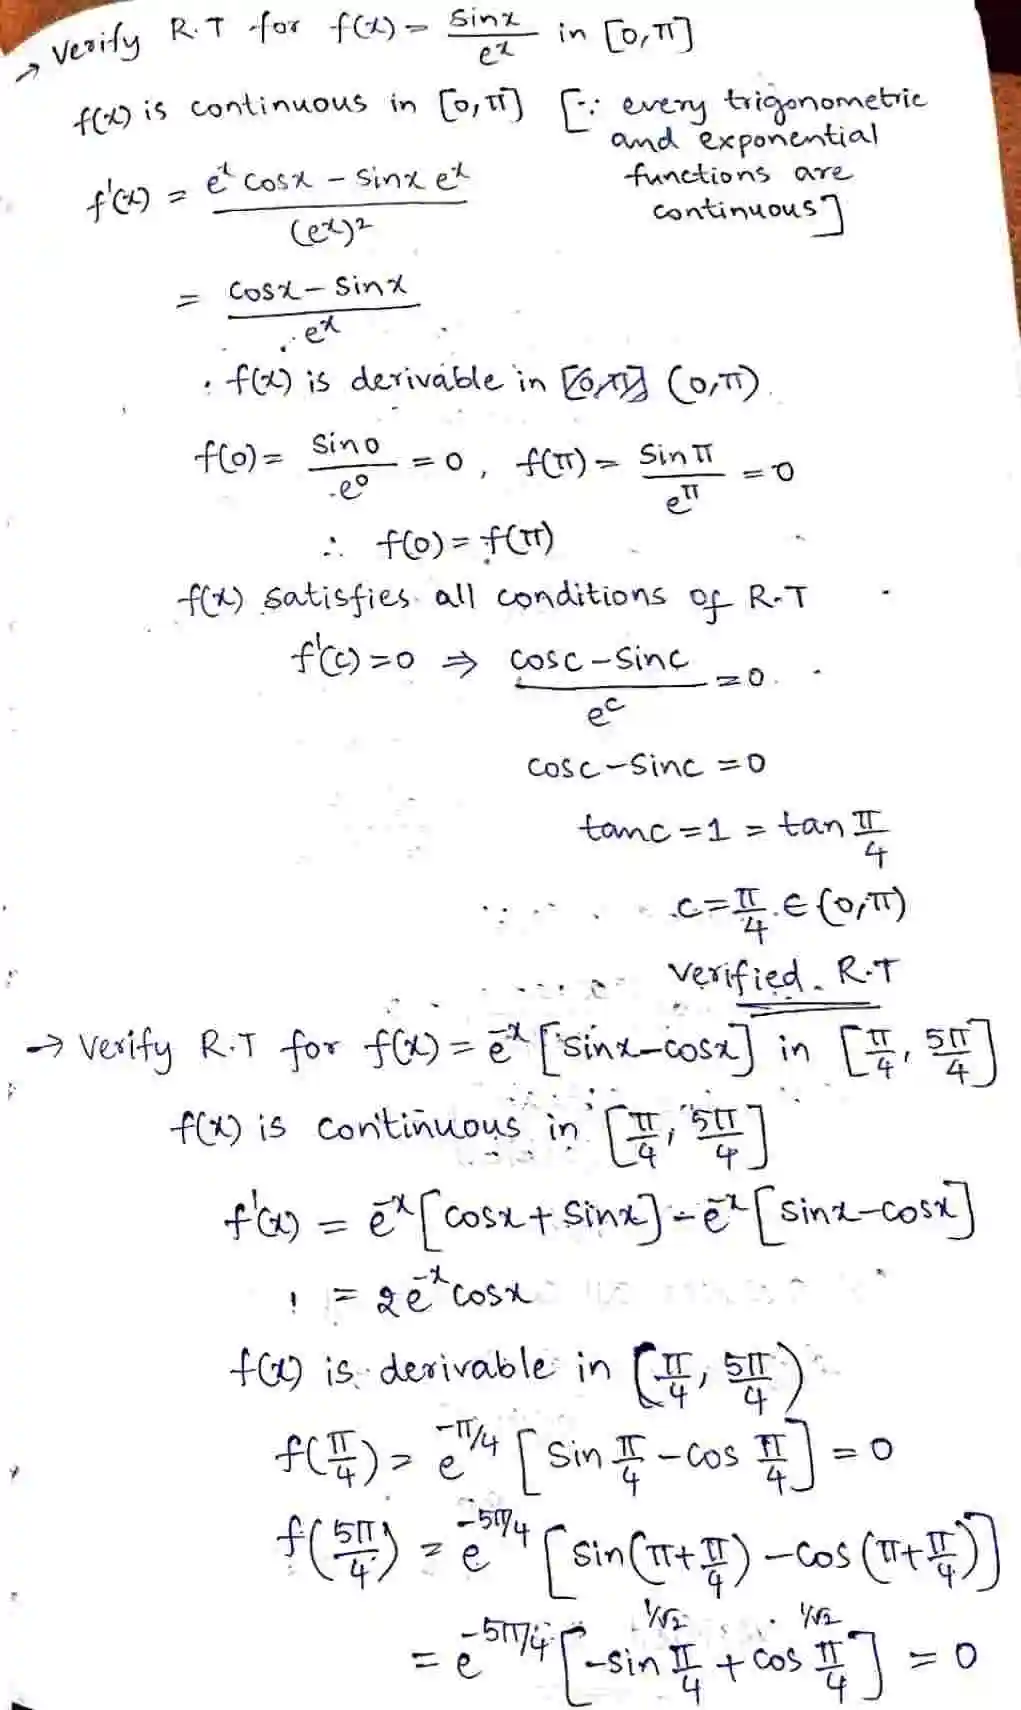 → Verify R.T for f(x) = sinx/e^x in [0,π]
f(x) is continuous in [0,π] [∵ every trigonometric
and exponential
functions are
continuous]
f'(x) = (e^x cosx - sinx e^x)/(e^x)^2
= (cosx - sinx)/e^x
. f(x) is derivable in (0,π).
f(0) = sin0/e^0 = 0, f(π) = sinπ/e^π = 0
∴ f(0) = f(π)
f(x) satisfies all conditions of R.T
f'(c) = 0 ⇒ (cosc - sinc)/e^c = 0.
cosc - sinc = 0
tanc = 1 = tan π/4
c = π/4 ∈ (0,π)
verified. R.T
→ Verify R.T for f(x) = e^-x [sinx-cosx] in [π/4, 5π/4]
f(x) is continuous in [π/4, 5π/4]
f'(x) = e^-x [cosx + sinx] - e^-x [sinx-cosx]
= 2e^-x cosx
f(x) is derivable in (π/4, 5π/4)
f(π/4) = e^-π/4 [sin π/4 - cos π/4] = 0
f(5π/4) = e^-5π/4 [sin(π+π/4) - cos(π+π/4)]
1/√2 1/√2
= e^-5π/4 [-sin π/4 + cos π/4] = 0